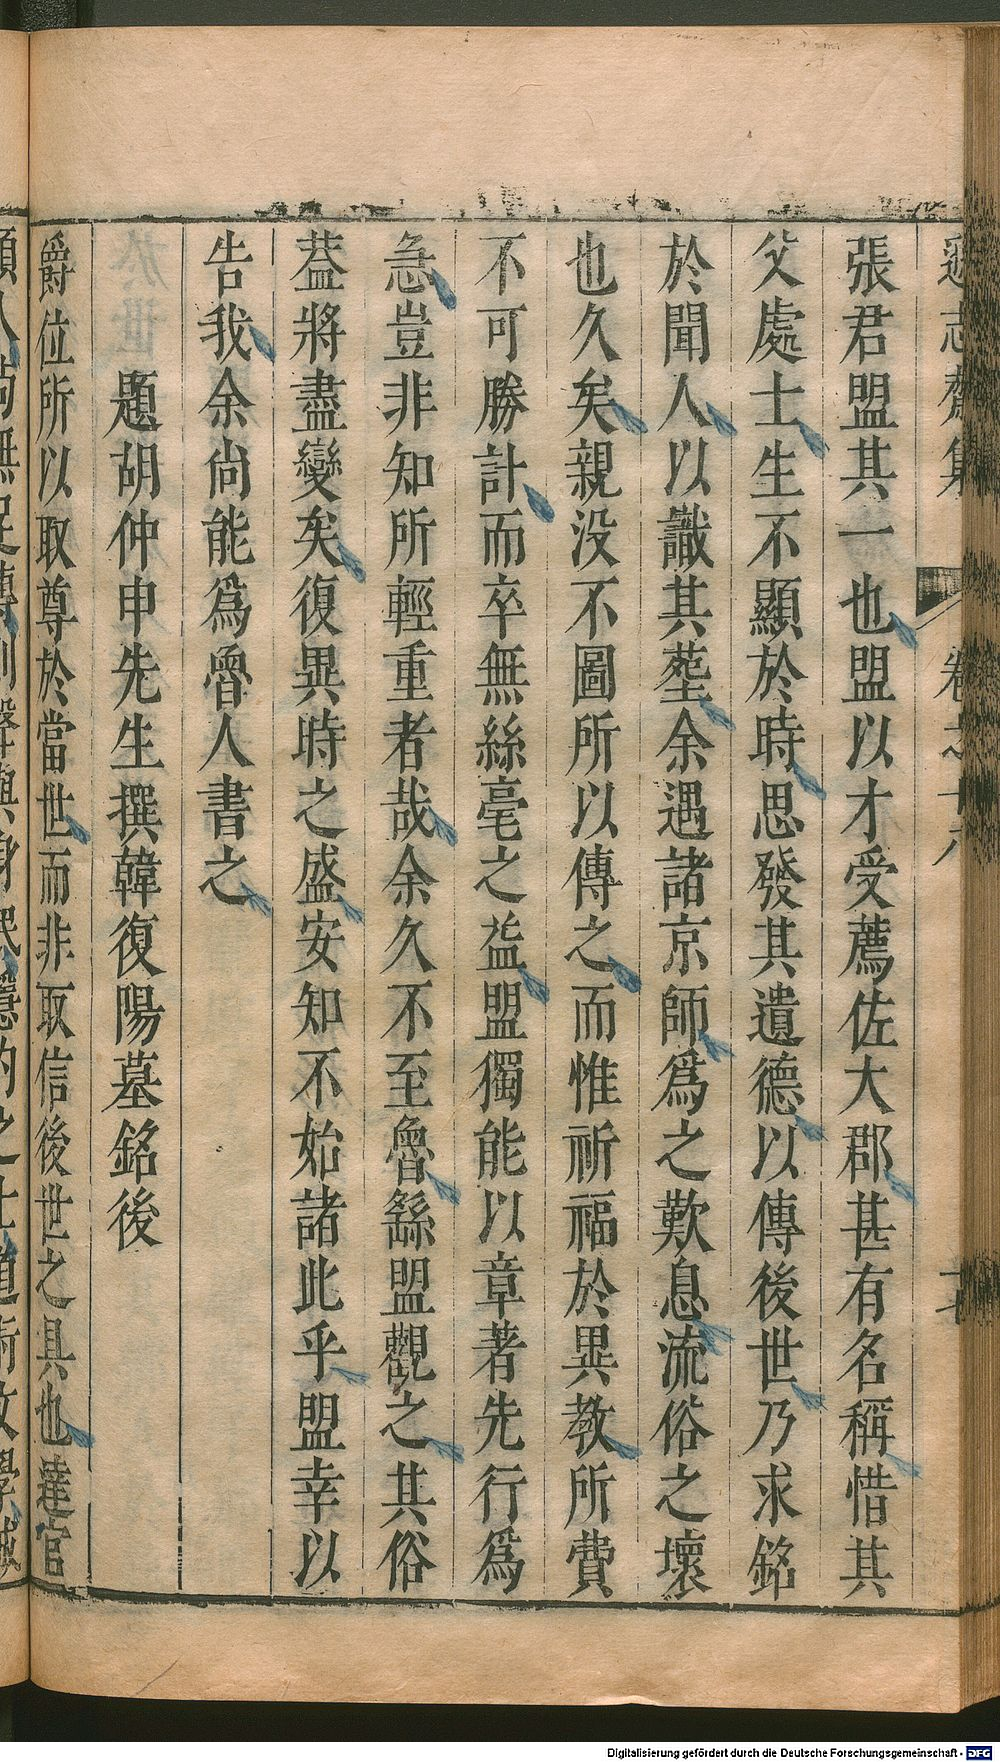 遜志齋集 卷之十八
張君盟其一也盟以才受薦佐大郡甚有名稱惜其
父處士生不顯於時思發其遺德以傳後世乃求銘
於聞人以識其墓余遇諸京師爲之歎息流俗之壞
也久矣親没不圖所以傳之而惟祈福於異教所費
不可勝計而卒無絲毫之益盟獨能以章著先行爲
急豈非知所輕重者哉余久不至魯繇盟觀之其俗
葢將盡變矣復異時之盛安知不始諸此乎盟幸以
告我余尚能爲魯人書之
題胡仲申先生撰韓復陽墓銘後
爵位所以取尊於當世而非取信後世之具也達官